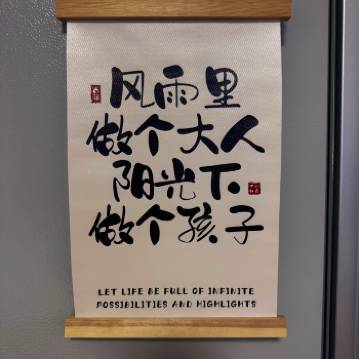 风雨里
做个大人
阳光下
做个孩子
LET LIFE BE FULL OF INFINITE
POSSIBILITIES AND HIGHLIGHTS